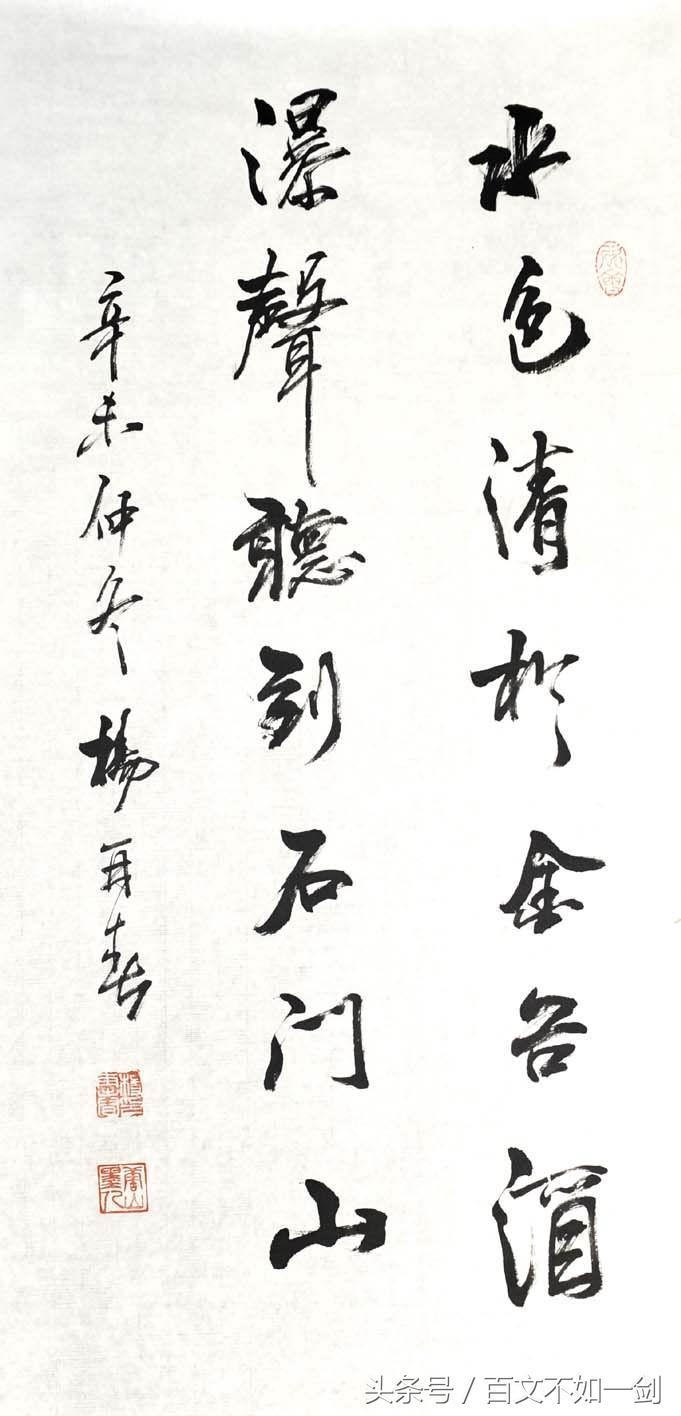 水色清於金谷澗
瀑聲聽到石门山
辛未仲冬楊再春
头条号 / 百文不如一剑